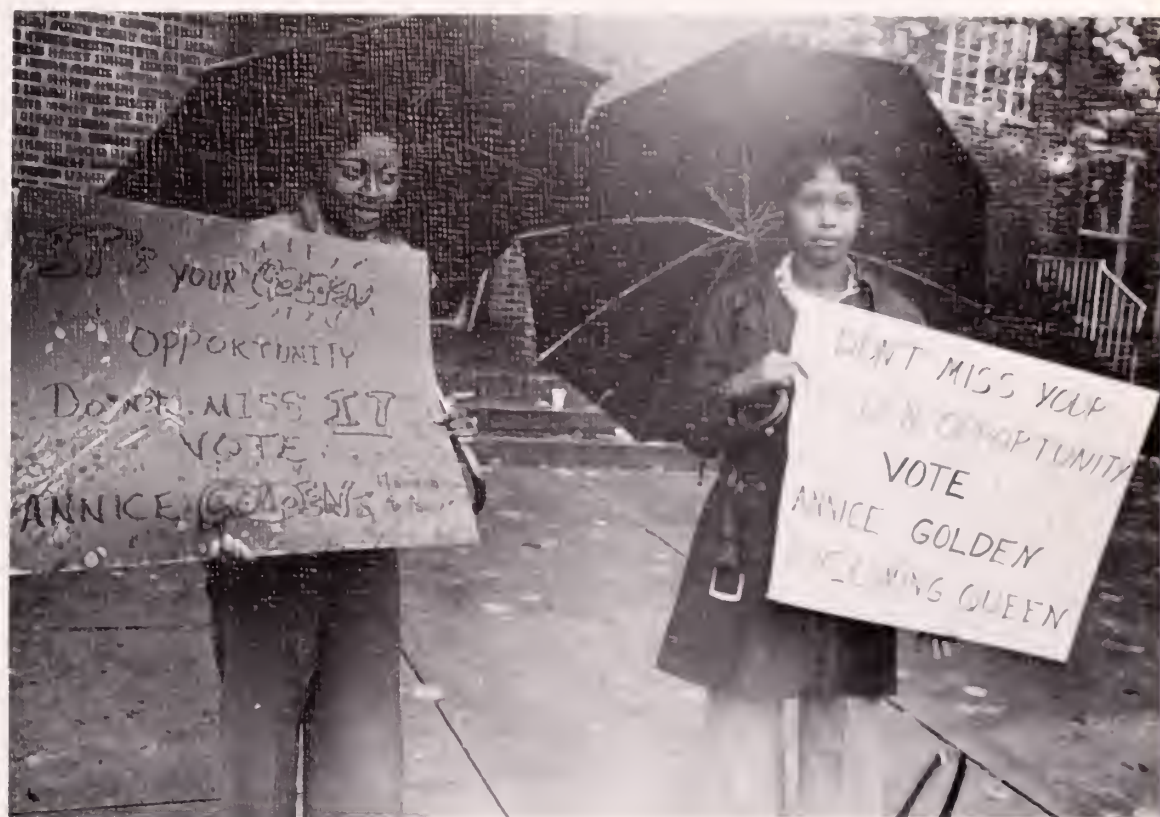 IT'S YOUR GOLDEN
OPPORTUNITY
DON'T MISS IT
VOTE
ANNICE GOLDEN
DON'T MISS YOUR
OPPORTUNITY
VOTE
ANNICE GOLDEN
QUEEN